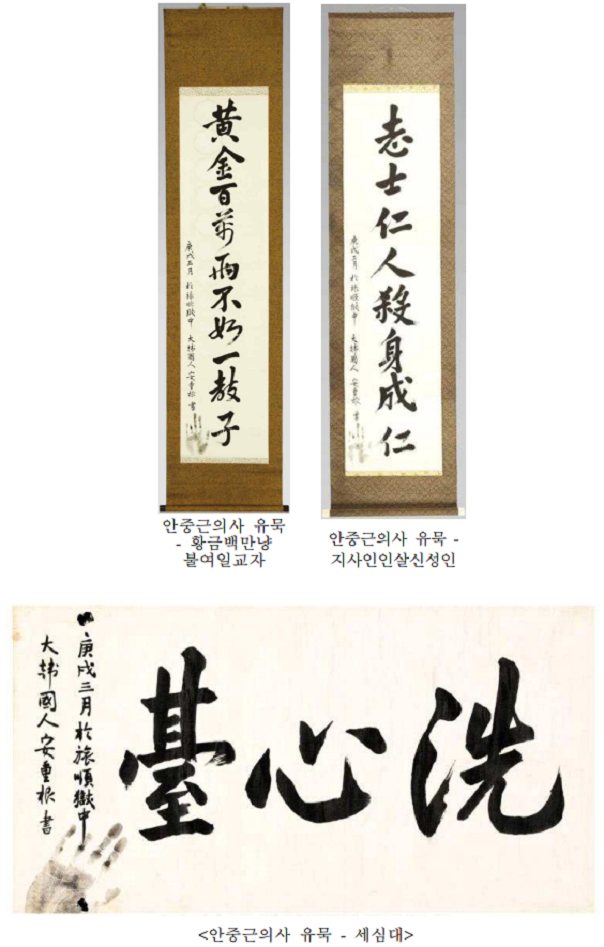 黃金百萬兩不如一敎子
庚戌三月 於旅順獄中 大韓國人 安重根 書
안중근의사 유묵
- 황금백만냥
불여일교자
志士仁人殺身成仁
庚戌三月 於旅順獄中 大韓國人 安重根 書
안중근의사 유묵 -
지사인인살신성인
洗心臺
庚戌三月 於旅順獄中
大韓國人 安重根 書
<안중근의사 유묵 - 세심대>